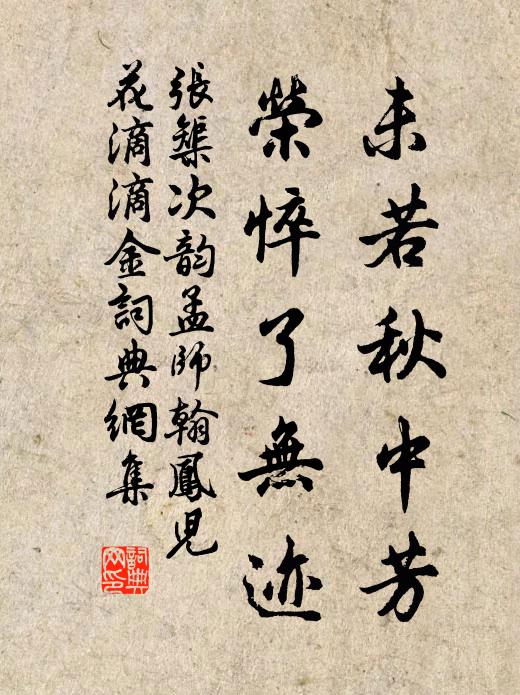 未若秋中芳
榮悴了無迹
張榘次韵孟師翰鳳兒
花滴滴金詞典網集
詞典网印